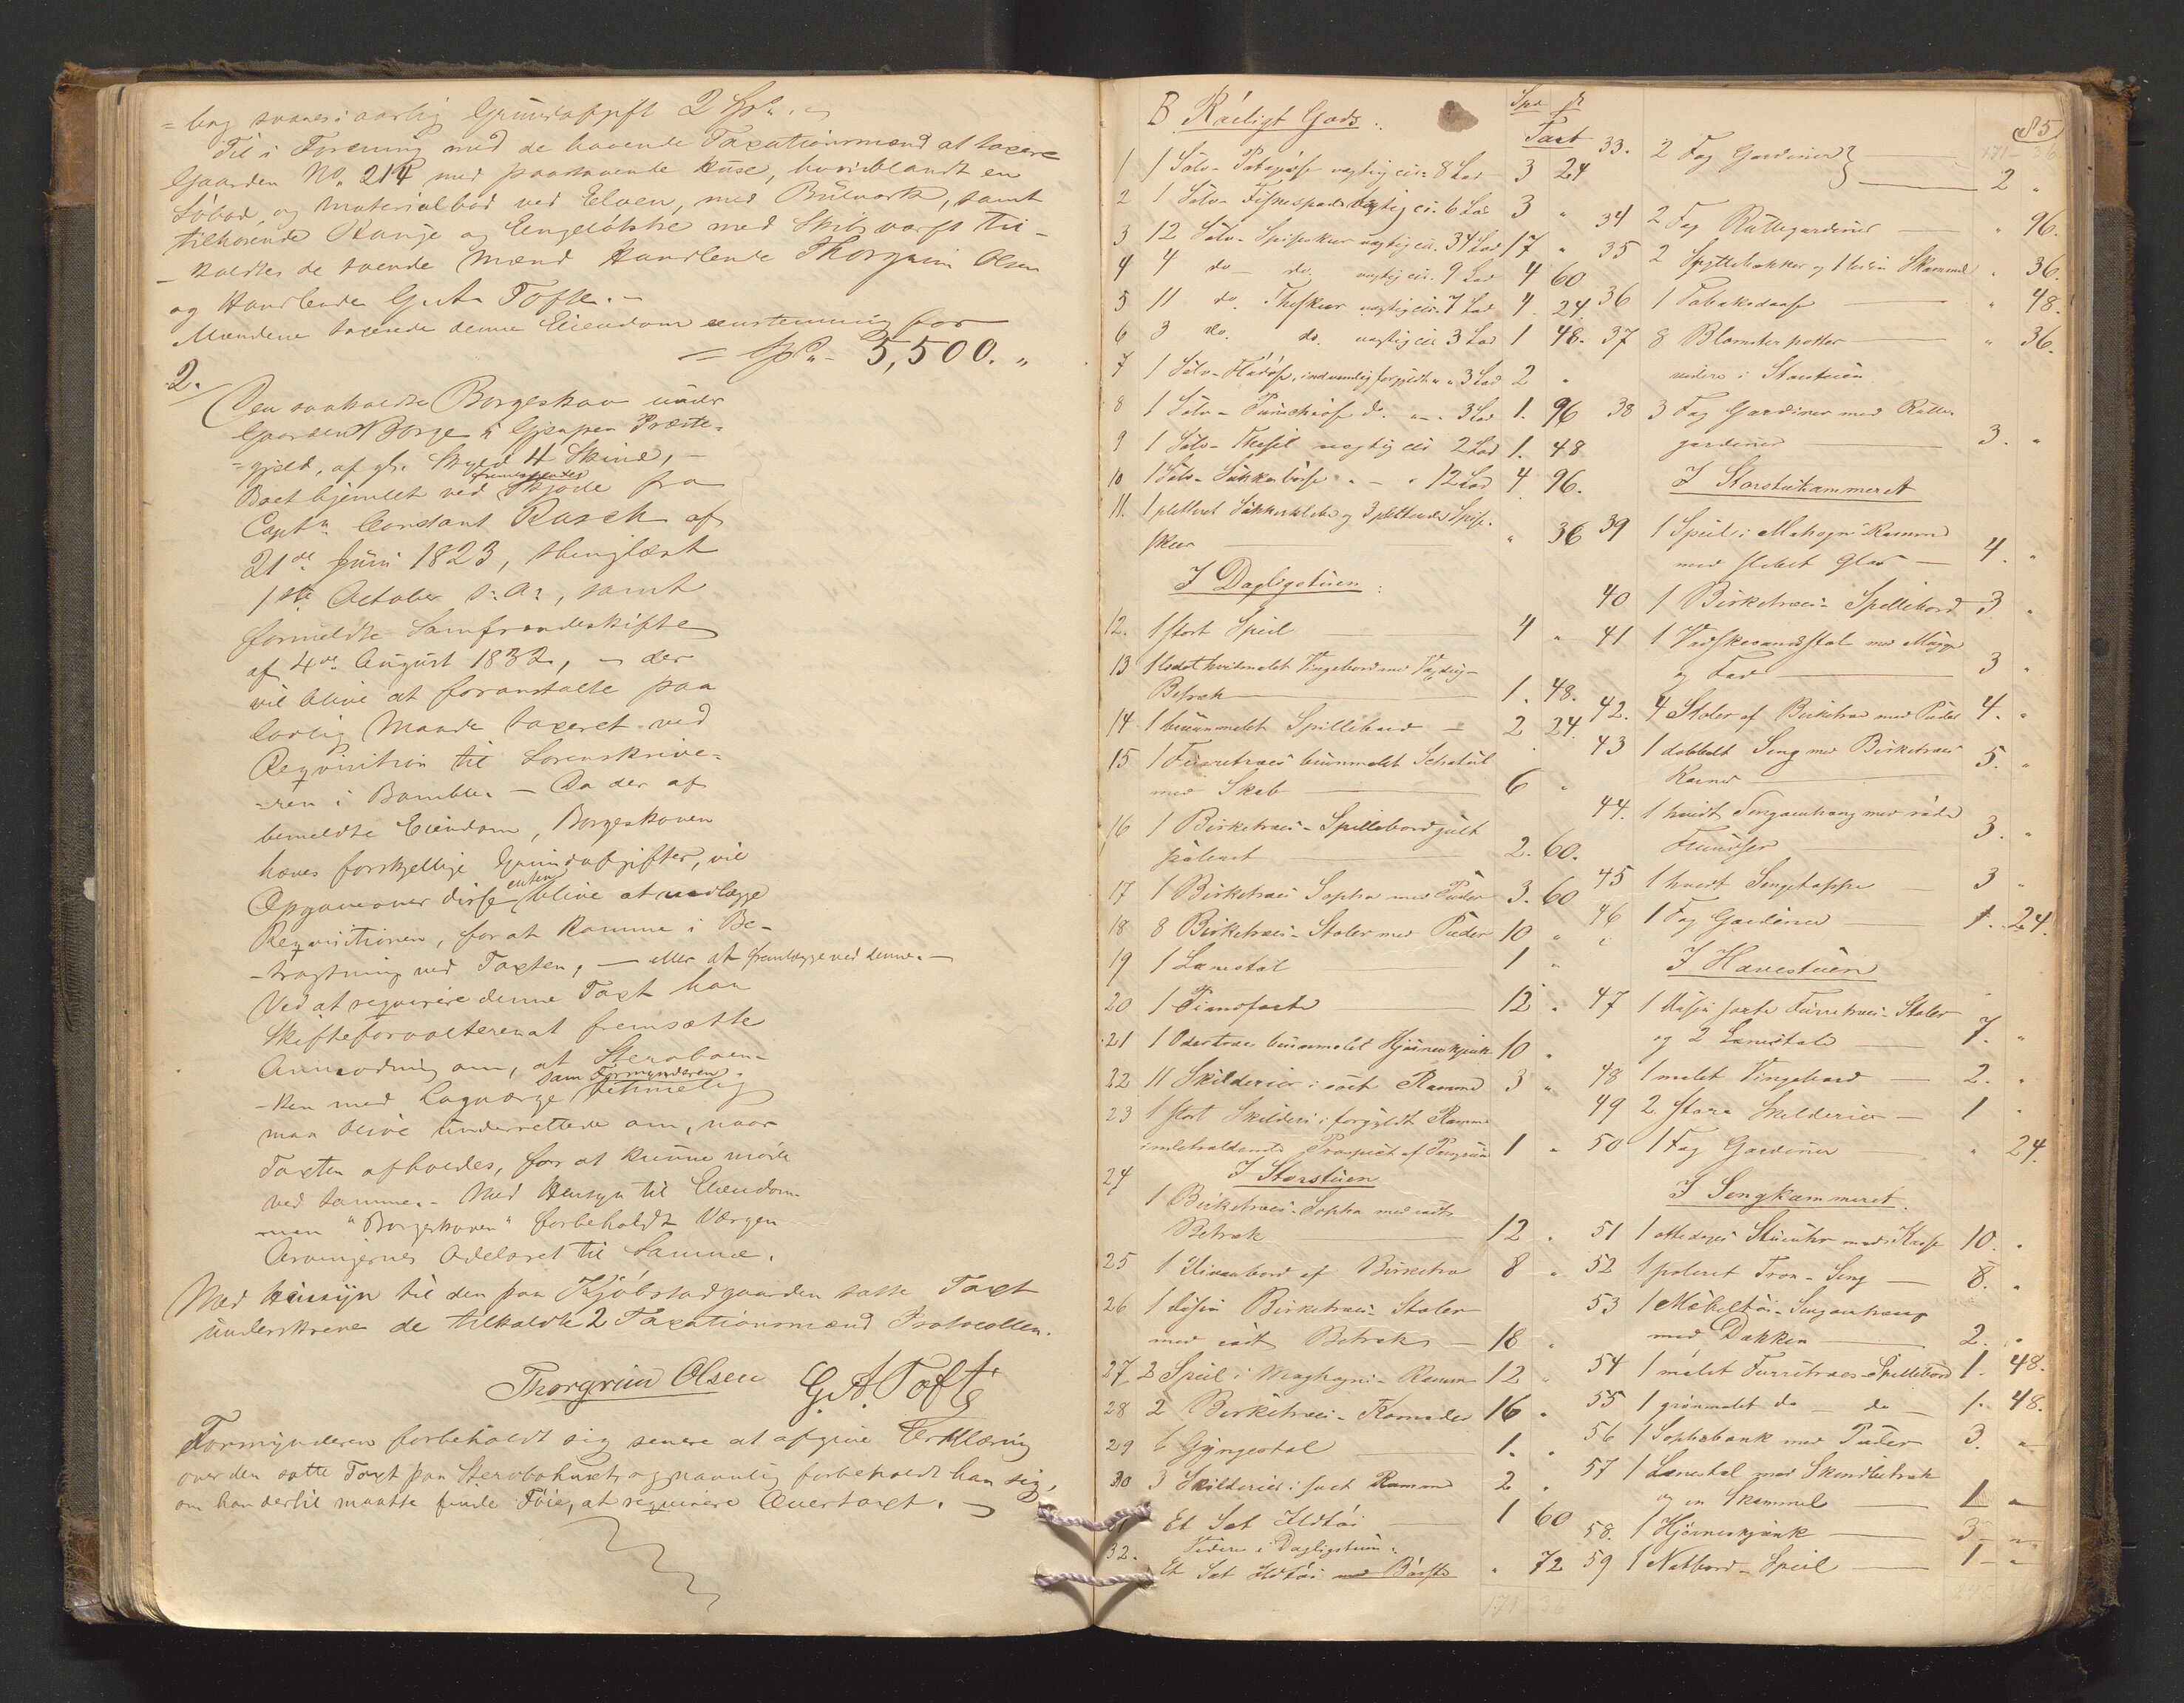 =bag svares i aarlig Grundafgift 2 Spd. „
Til i Forening med de havende Taxationsmænd at taxere
Gaarden No. 214 med paastaaende Huse, hvoriblandt en
Söbod, og Materialbod ved Elven, med Bulværk, samt
tilhörende Hauge og Engelökke med Skibsværft til-
-kaldtes de tvende Mænd Handlende Thorgrim Olsen
og Handlende G. A. Tofte. -
Mændene taxerede denne Eiendom eenstemmig for
= Spd. 5,500. „
2.
Den saakaldte Borgeskov under
Gaarden Borge i Gjerpen Præste-
=gjeld, af gl. Skyld 4 Skind, -
Boet hjemlet ved fremlagendes Skjöde fra
Captn Constant Rasch af
21de Juni 1823, thinglæst
1ste October s. A., samt
formeldte Samfrændeskifte
af 4de August 1832, - der
vil blive at foranstalte paa
lovlig Maade taxeret ved
Reqvisition til Sorenskrive-
=ren i Bamble. - Da der af
bemeldte Eiendom, Borgeskoven
haves forskjellige Grundafgifter, vil
Opgave over disse enten blive at vedlægge
Reqvisitionen, for at komme i Be-
-tragtning ved Taxten, - eller at fremlægge ved denne. -
Ved at reqvirere denne Taxt har
Skifteforvalteren at fremsætte
Anmodning om, at Stervboen-
-ken med Laugværge samt Formynderen betimelig
maa blive underrettede om, naar
Taxten afholdes, for at kunne möde
ved samme. - Med Hensyn til Eiendom-
men "Borgeskoven" forbeholdt Værgen
Arvingernes Odelsret til Samme.
Med Hensyn til den paa Kjöbstadgaarden satte Taxt
underskreve de tilkaldte 2 Taxationsmænd Protocollen.
Thorgrim Olsen G. A. Tofte
Formynderen forbeholdt sig senere at afgive Erklæring
over den satte Taxt paa Stervbohuset og navnlig forbeholdt han sig,
om han dertil maatte finde Föie, at reqvirere Overtaxt. -
B. Rörligt Gods.
Spd ß
Taxt
1 1 Sölv- Potageöse vægtig cir. 8 Lod 3 24
2 1 Sölv- Fiskespade vægtig cir. 6 Lod 3 „
3 12 Sölv- Spiseskeer vægtig cir. 34 Lod 17 „
4 4 do - do. vægtig cir. 9 Lod 4 60
5 11 do. Theskeer vægtig cir. 7 Lod 4. 24.
6 3 do. do. vægtig cir 3 Lod 1 48.
7 1 Sölv- Flödöse, indvendig forgyldt „ „ 3 Lod 2 „
8 1 Sölv- Punscheöse do. „ - „ 3 Lod 1. 96
9 1 Sölv- Thesil vægtig cir 2 Lod 1. 48
10 1 Sölv- Sukkerbösse „ - „ 12 Lod 4 96.
11. 1 pletteret Sukkerklype og 3 pletterede Spise-
skeer „ 36
I Dagligstuen:
12. 1 stort Speil 4 „
13 1 lidet hvidmalet Vingebord med Voxdug-
Betræk 1. 48.
14 1 bruunmalet Spillebord 2 24.
15 1 Furretræes bruunmalet Schatul
med Skab 6 „
16 1 Birketræes- Spillebord guult
poleret 2. 60.
17 1 Birketræes Sopha med Puder 3. 60
18 8 Birketræes- Stoler med Puder 10 „
19 1 Lænestol 1 „
20 1 Pianoforte 12 „
21 1 Odertræes bruunmalet Hjörneskjænk 10 „
22 11 Skilderier i sort Ramme 3 „
23 1 stort Skilderi i forgyldt Ramme
indeholdende Prospect af Porsgrund 1 „
I Storstuen
24 1 Birketræes- Sopha med rödt
Betræk 12 „
25 1 Divanbord af Birketræ 8 „
26 1 Dusin Birketræes- Stoler
med rödt Betræk 18 „
27 2 Speil i Maghogni- Ramme 12 „
28 2 Birketræes- Komoder 16 „
29 1 Gyngestol 1. „
30 3 Skilderier i sort Ramme 2 „
31 Et Sæt Ildtöi 1 60
Videre i Dagligstuen:
32. Et Sæt Ildtöi med Börste „ 72
171 36
85
171 - 36
33. 2 Fag Gardiner 2 „
34 2 Fag Rullegardiner „ 96.
35 2 Spyttebakker og 1 liden Skammel „ 36.
36 1 Tobaksdaase „ 48.
37 8 Blomsterpotter „ 36.
videre i Storstuen
38 3 Fag Gardiner med Rulle-
gardiner 3. „
I Storstukammeret
39 1 Speil i Mahogni Ramme
med slebet Glas 4. „
40 1 Birketræes- Spillebord 3 „
41 1 Vadskevandsstol med Mugge
og Fad 3 „
42. 4 Stoler af Birketræ med Puder 4. „
43 1 dobbelt Seng med Birketræes
Karner 5. „
44. 1 hvidt Sengomhang med röde
Frundser 3. „
45 1 hvidt Sengetæppe 3 „
46 1 Fag Gardiner 1. 24.
I Havestuen
47 1 Dusin sorte Furretræes- Stoler
og 2 Lænestole 7. „
48 1 malet Vingebord 2. „
49 2 store Skilderier 1 „
50 1 Fag Gardiner „ 24.
I Sengkammeret.
51 1 otte dages Stueuhr med Kasse 10. „
52 1 poleret Tron- Seng 8. „
53 1 Möbeltöi- Sengomhæng
med Dækken 2. „
54 1 malet Furretræes- Spillebord 1. 48.
55 1 grönmalet do - do 1. 48.
56 1 Sophabænk med Puder 3. „
57 1 Lænestol med Skindbetræk
og en Skammel 1 „
58. 1 Hjörneskjænk 3 „
59 1 Natbord- Speil 1 „